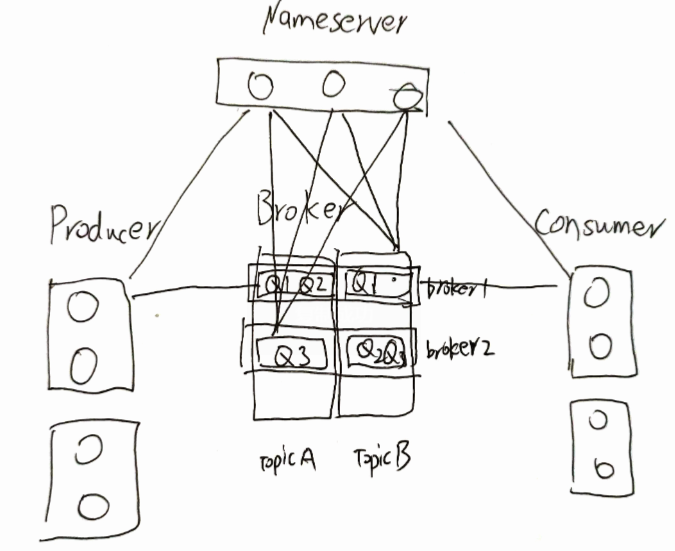 Nameserver
Broker
Producer
Consumer
Q1 Q2
Q1
broker1
Q3
Q2Q3
broker2
TopicA
TopicB